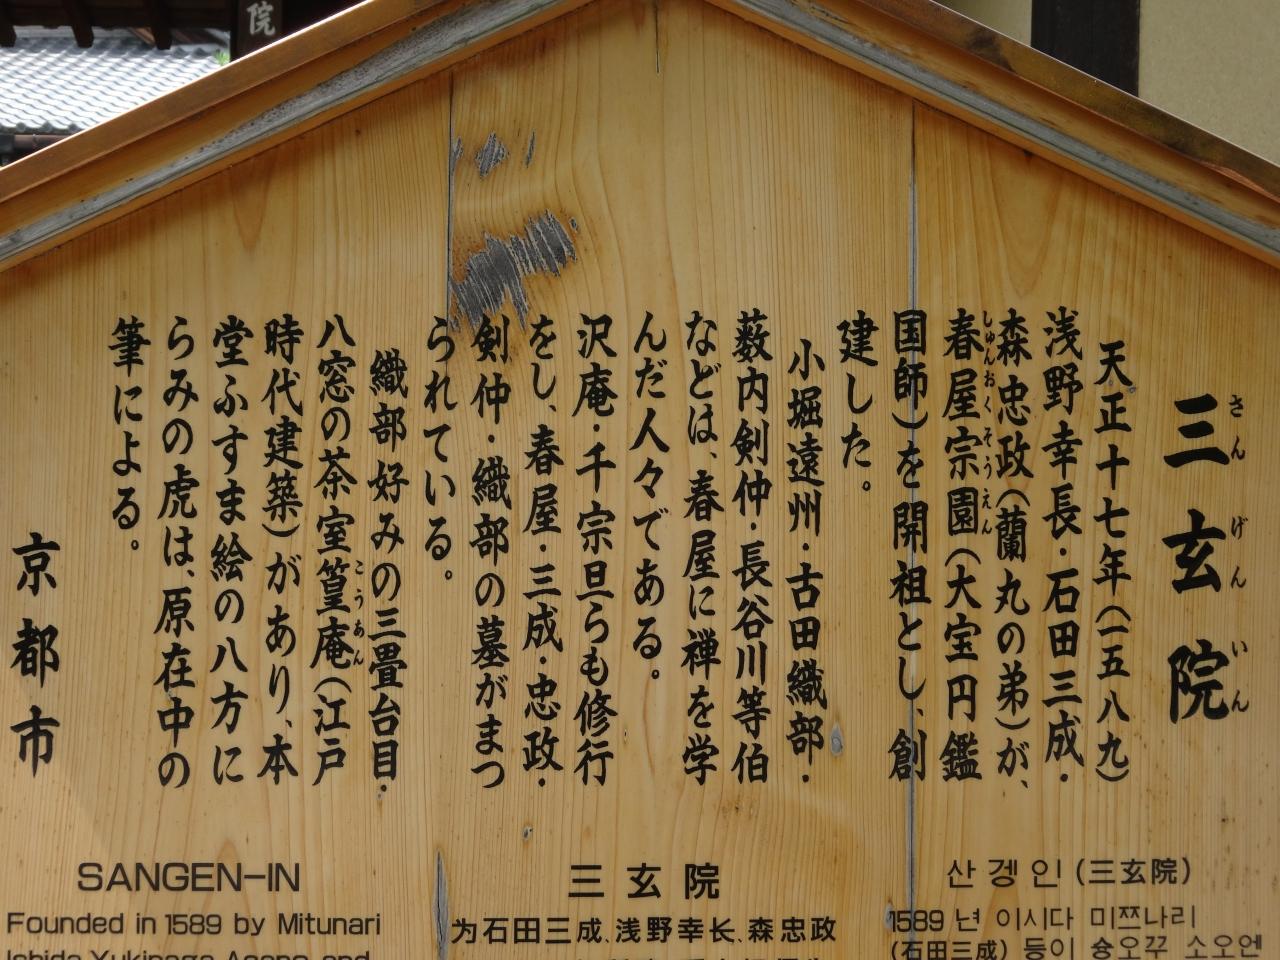 院
三玄院
さんげんいん
天正十七年(一五八九)
浅野幸長・石田三成・
森忠政(蘭丸の弟)が、
春屋宗園(大宝円鑑
しゅんおくそうえん
国師)を開祖とし、創
建した。
小堀遠州・古田織部・
薮内剣仲・長谷川等伯
などは、春屋に禅を学
んだ人々である。
沢庵・千宗旦らも修行
をし、春屋・三成・忠政・
剣仲・織部の墓がまつ
られている。
織部好みの三畳台目・
八窓の茶室篁庵(江戸
こうあん
時代建築)があり、本
堂ふすま絵の八方に
らみの虎は、原在中の
筆による。
京都市
SANGEN-IN
Founded in 1589 by Mitunari
Ishida Yukinaga Asano and
三玄院
为石田三成、浅野幸长、森忠政
산겡인(三玄院)
1589 년 이시다 미쯔나리
(石田三成) 등이 슝오꾸 소오엔